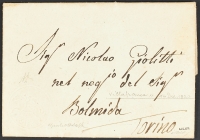 Sig.r Nicolao Giolitti
nel nego.o del Sig.r
Bolmida
Torino